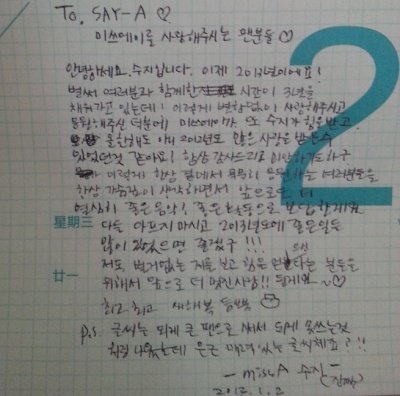 To. SAY-A ♡
미쓰에이를 사랑해주시는 팬분들 ♡
2
안녕하세요. 수지입니다. 이제 2013년이에요!
벌써 여러분과 함께한 시간이 3년을
채워가고 있는데! 이렇게 변함없이 사랑해주시고
응원해주신 덕분에 미쓰에이가, 또 수지가 힘을 받고
올한해도 아니 2012년도 많은 사랑을 받을수
있었던것 같아요! 항상 감사드리고 미안하기도하구
이렇게 항상 곁에서 묵묵히 응원하는 여러분들을
항상 가슴깊이 생각하면서 앞으로도 더
열심히 좋은음악! 좋은활동으로 보답할게요
星期三
다들 아프지 마시고 2013년도에 좋은일들
많이 있었으면 좋겠구!!!
廿一
저도 별거없는 저를 보고 힘을 얻으신다는 분들을
위해서 앞으로 더 멋진사람!! 될게요 ~♡
최고 최고 새해복 듬뿍
p.s. 글씨는 되게 큰 펜으로 써서 되게 못쓰는것
처럼 나왔는데 은근 매력있는 글씨체죠?!!
- miss A 수지 -
2013.1.2